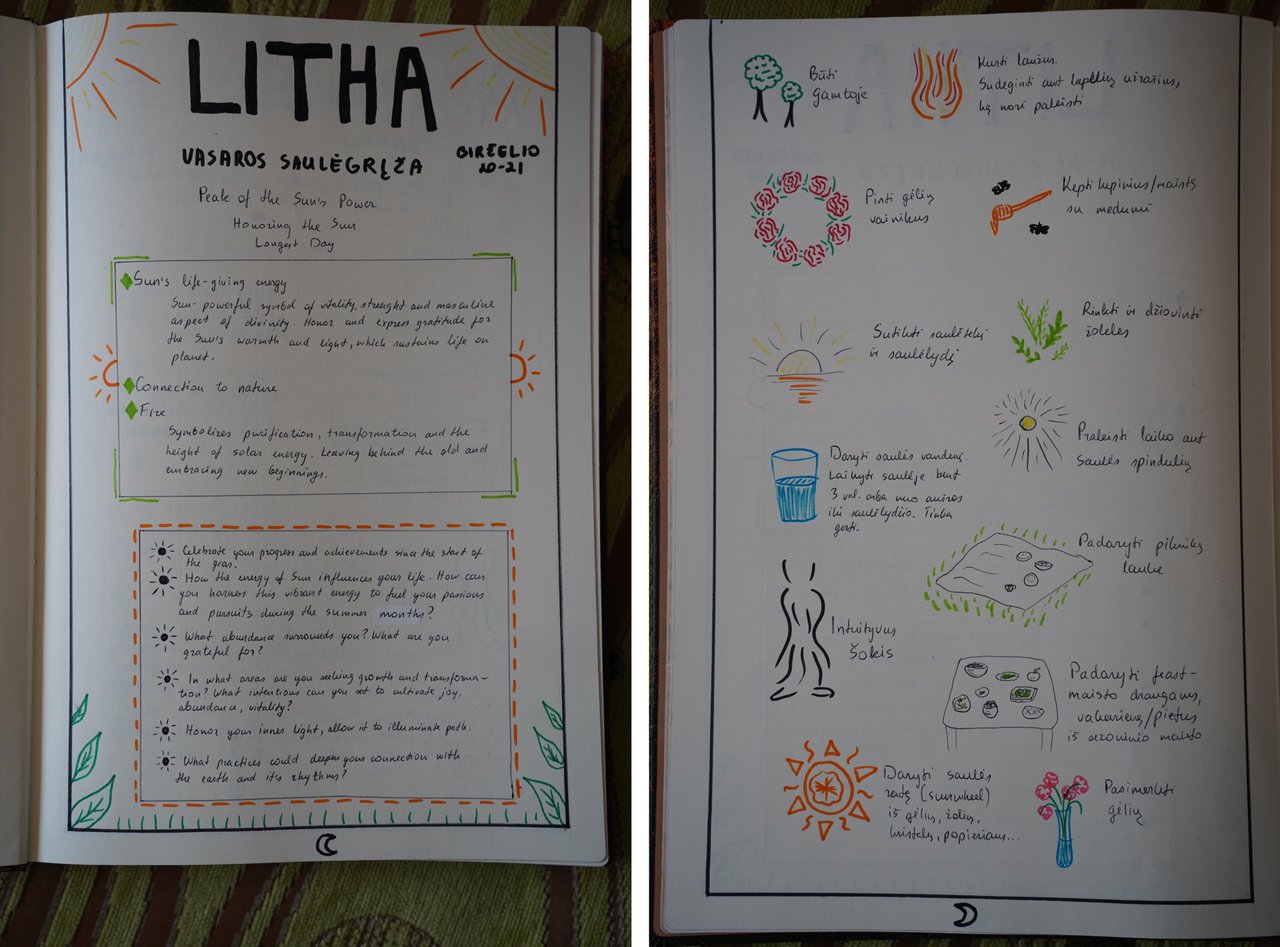 LITHA
VASAROS SAULĖGRĮŽA
BIRŽELIO
20-21
Peak of the Sun's Power
Honoring the Sun
Longest Day
Sun's life-giving energy
Sun- powerful symbol of vitality, strenght and masculine
aspect of divinity. Honor and express gratitude for
the Sun's warmth and light, which sustains life on
planet.
Connection to nature
Fire
Symbolizes purification, transformation and the
height of solar energy. Leaving behind the old and
embracing new beginnings.
Celebrate your progress and achievements since the start of
the year.
How the energy of Sun influences your life. How can
you harness this vibrant energy to fuel your passions
and pursuits during the summer months?
What abundance surrounds you? What are you
grateful for?
In what areas are you seeking growth and transforma-
tion? What intentions can you set to cultivate joy,
abundance, vitality?
Honor your inner light, allow it to illuminate path.
What practices could deepen your connection with
the earth and its rhythms?
Būti
Gamtoje
Kurti laužus.
Sudeginti ant lapelių užrašius,
ką nori paleisti
Pinti gėlių
vainikus
Kepti kepinius/maistą
su medumi
Sutikti saulėtekį
ir saulėlydį
Rinkti ir džiovinti
žoleles
Praleisti laiko ant
saulės spindulių
Daryti saulės vandenį.
Laikyti saulėje bent
3 val. arba nuo aušros
iki saulėlydžio. Tinka
gerti.
Padaryti pikniką
lauke
Intuityvus
šokis
Padaryti feast-
maisto draugams,
vakarienę/pietus
iš sezoninio maisto
Daryti saulės
ratą (sunwheel)
iš gėlių, žolių,
kristalų, popieriaus...
Pasimerkti
gėlių